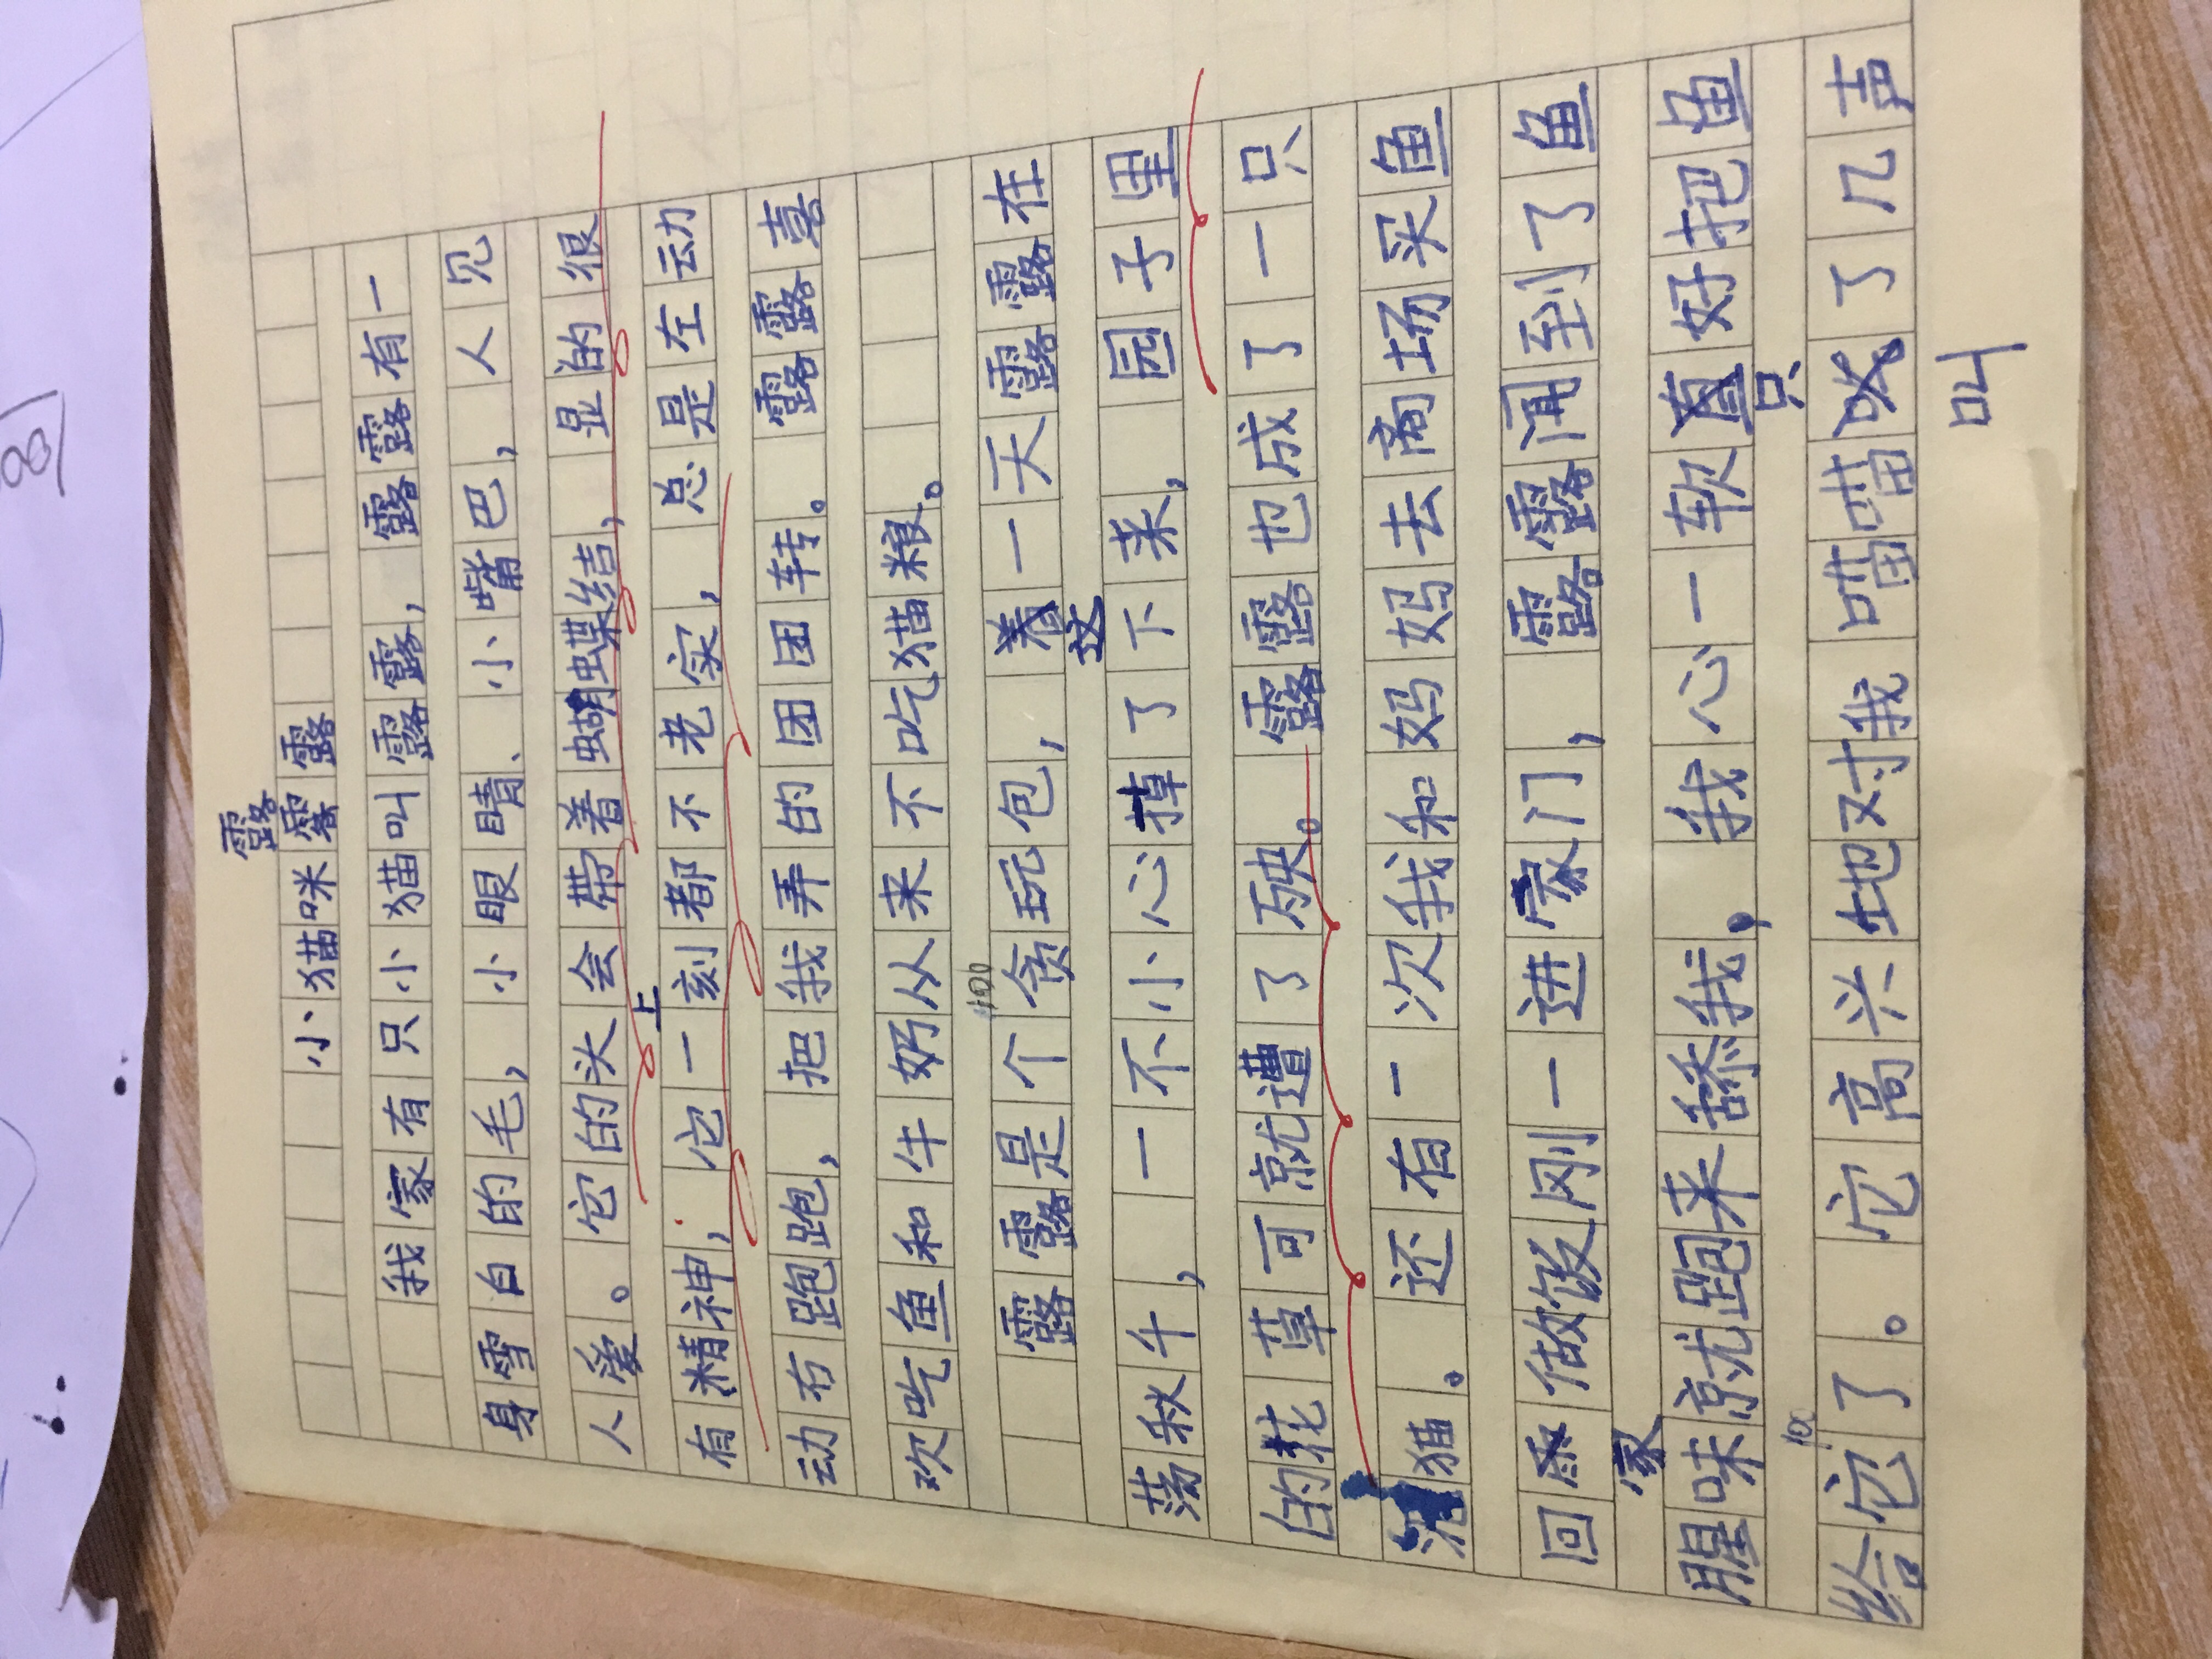 露
小猫咪露露
我家有只小猫叫露露,露露有一
身雪白的毛,小眼睛、小嘴巴,人见
人爱。它的头会带着蝴蝶结,显的很
上
有精神,它一刻都不老实,总是左动
动右跑跑,把我弄的团团转。露露喜
欢吃鱼和牛奶从来不吃猫粮。
100
露露是个贪玩包,着一天露露在
这
荡秋千,一不小心掉了下来,园子里
的花草可就遭了殃。露露也成了一只
猫。还有一次我和妈妈去商场买鱼
回做饭刚一进家门,露露闻到了鱼
家
腥味就跑来舔我,我心一软直好把鱼
只
给它了。它高兴地对我喵喵了几声
叫